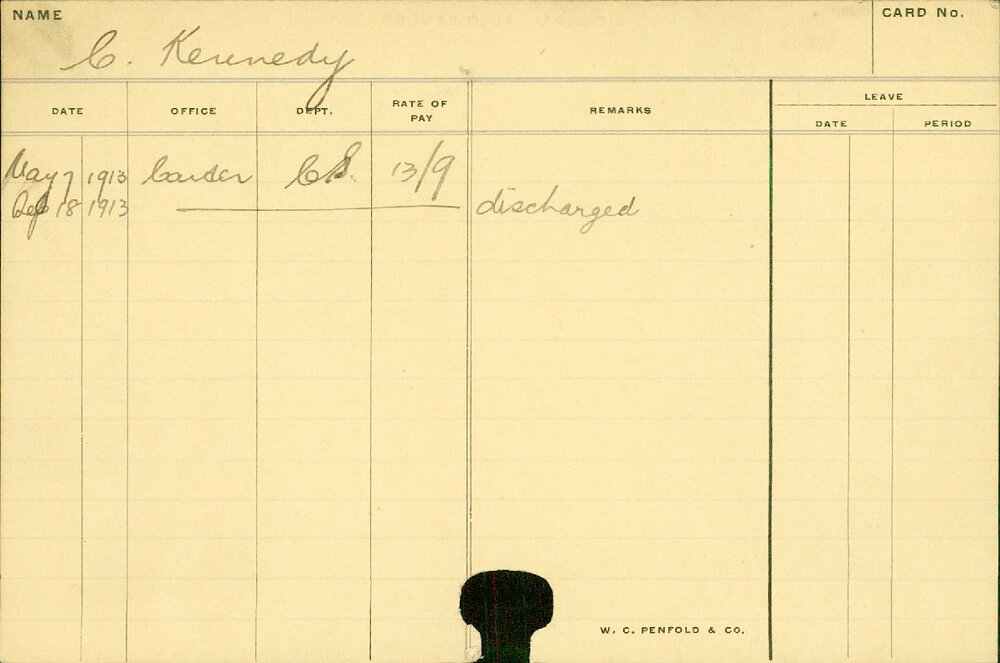 NAME
C. Kennedy
CARD No.
DATE OFFICE DEPT. RATE OF PAY REMARKS LEAVE
DATE PERIOD
May 7 1913 C.S. 13/9
Sep 18 1913 discharged
W. C. PENFOLD & CO.